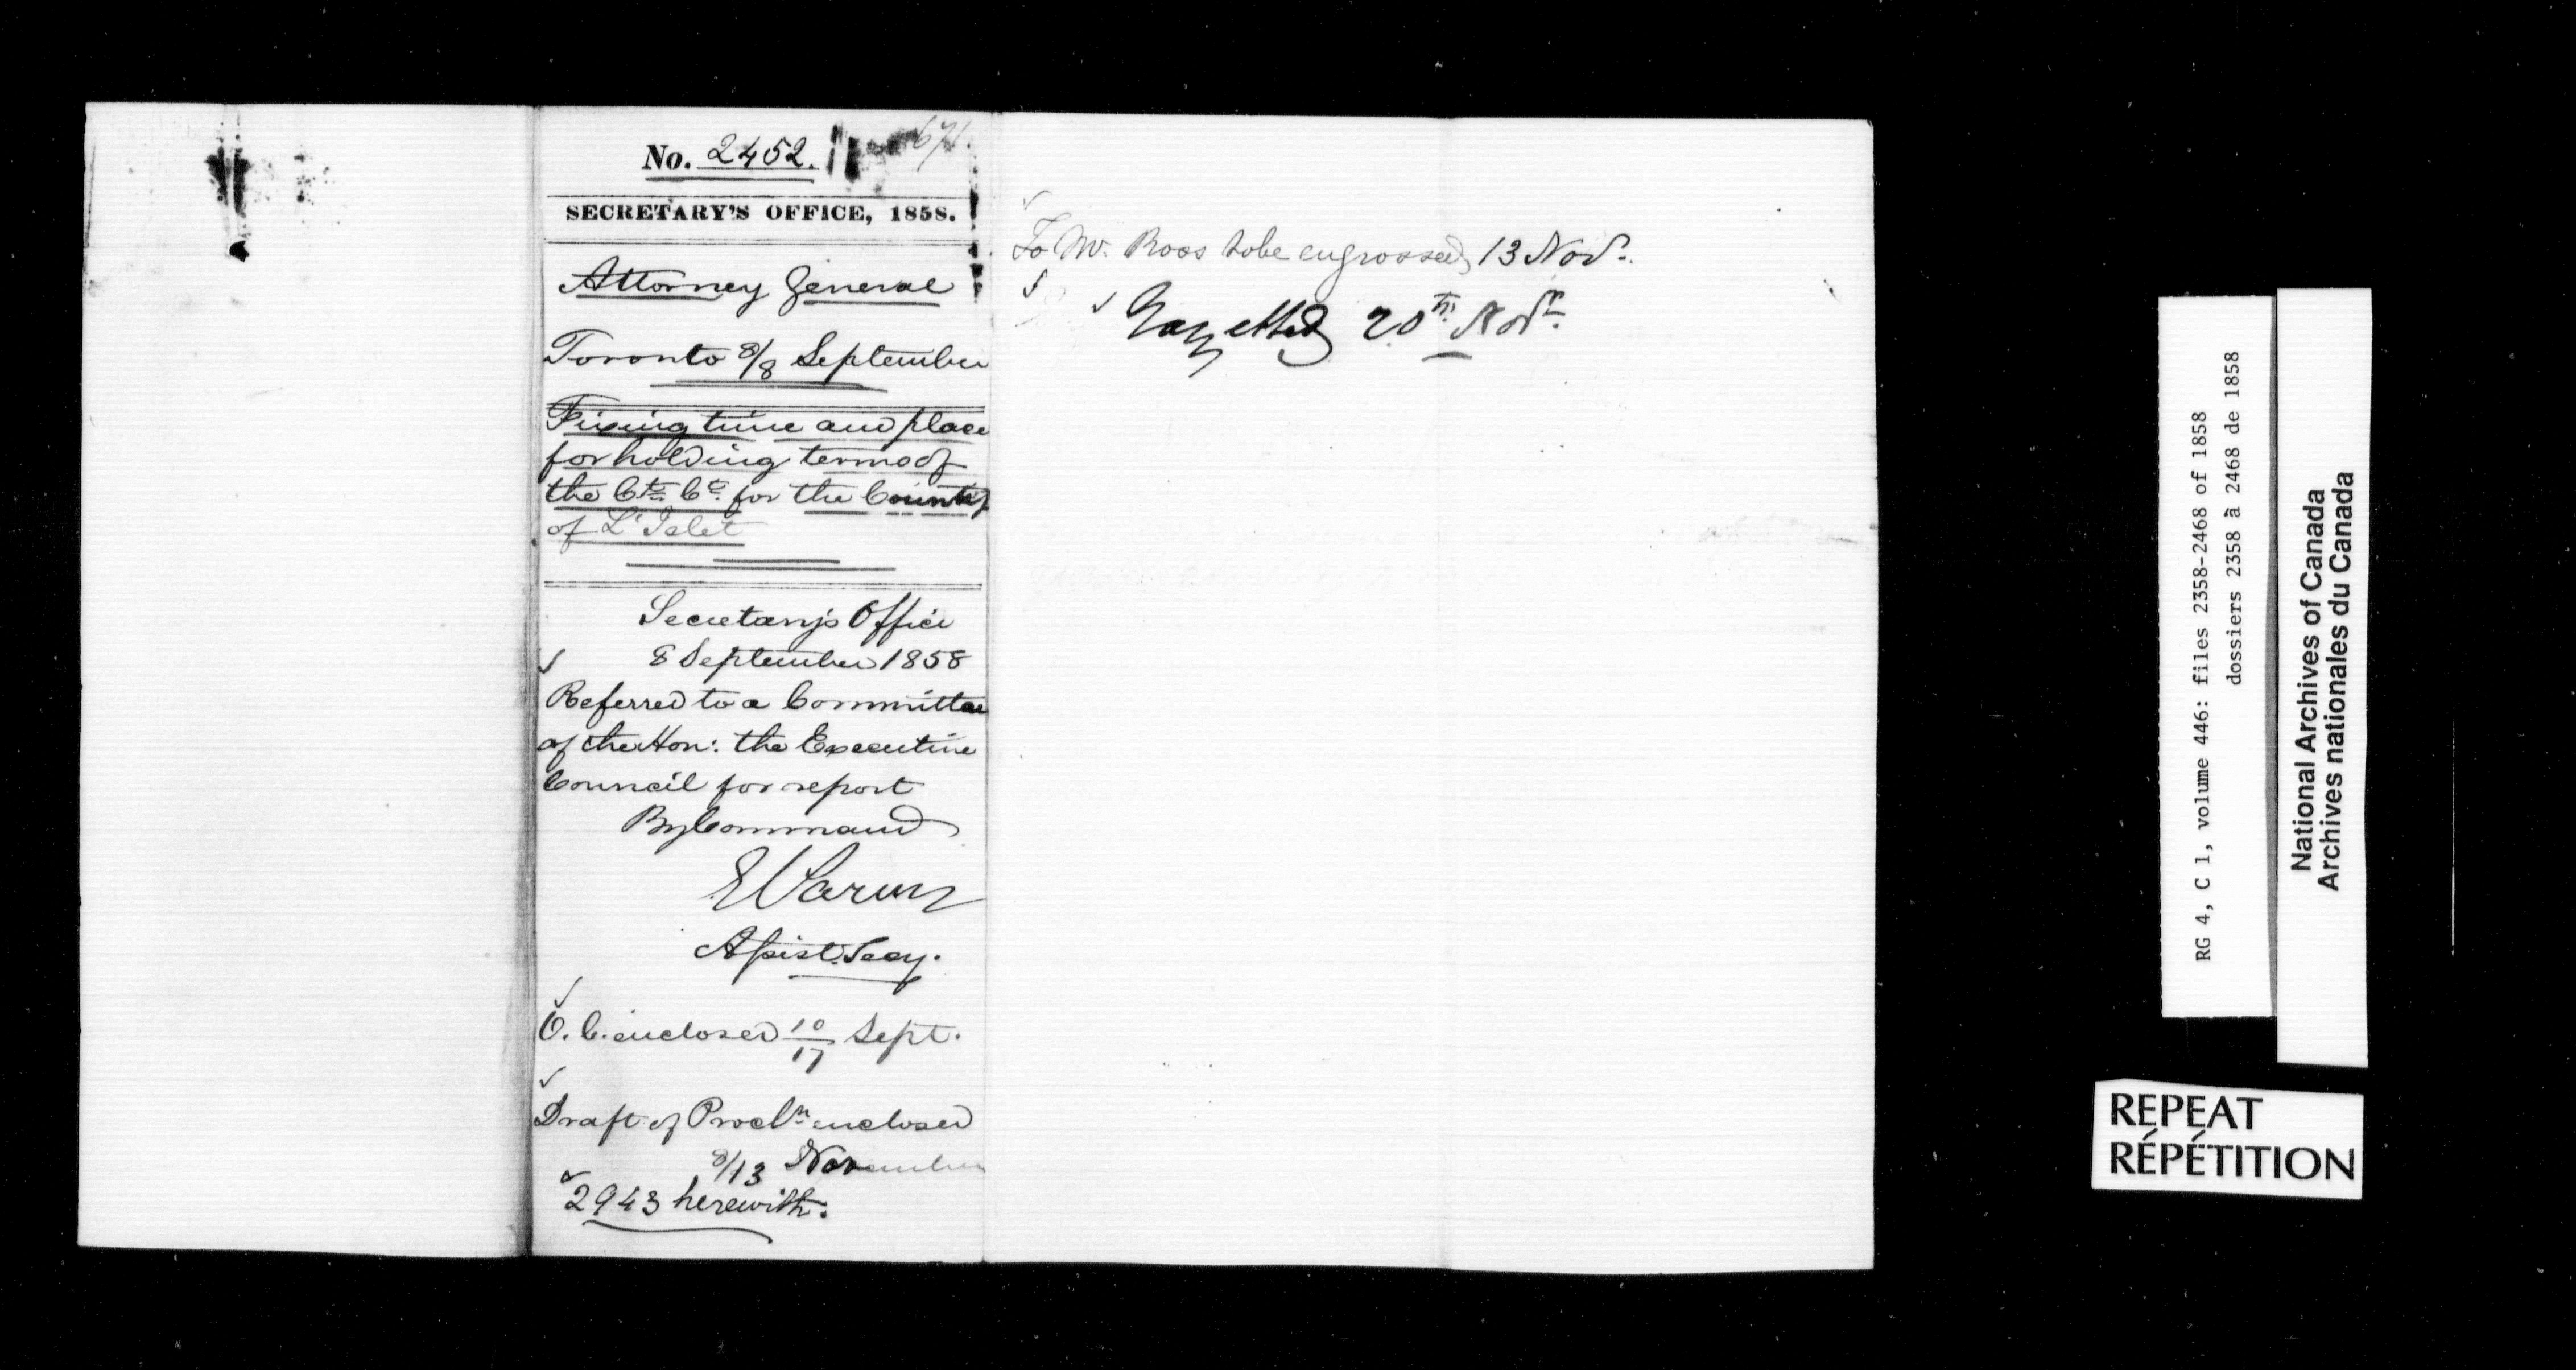 No. 2452. 671.
SECRETARY'S OFFICE, 1858.
Attorney General
Toronto 8/8 September
Fixing time and place
for holding terms of
the Ct. Ct. for the County
of L'Islet
Secretary's Office
8 September 1858
Referred to a Committee
of the Hon: the Executive
Council for report
By Command
E Parent
Assist. Secy.
O. C. enclosed 10/17 Sept.
Draft of Procln enclosed
8/13 November
2943 herewith.
To Mr. Ross to be engrossed, 13 Novr.
Gazetted 20th Novr.
RG 4, C 1, volume 446: files 2358-2468 of 1858
dossiers 2358 à 2468 de 1858
National Archives of Canada
Archives nationales du Canada
REPEAT
RÉPÉTITION